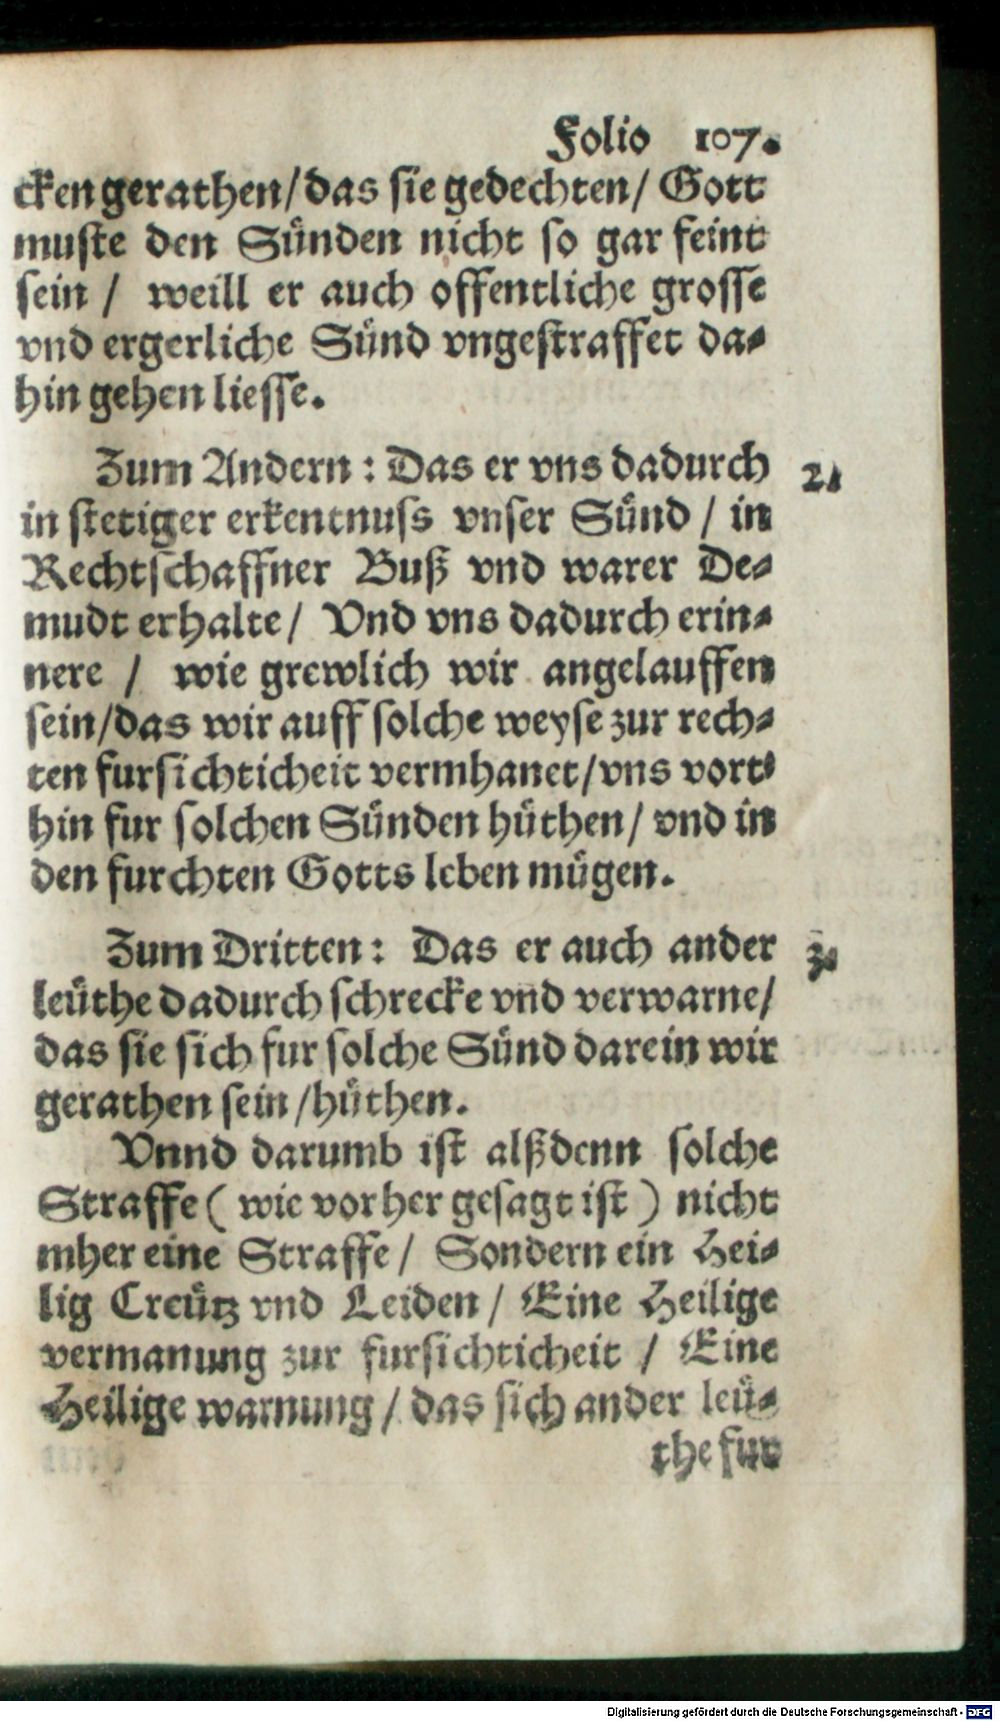 Folio 107.
cken gerathen/das sie gedechten/ Gott
muste den Sünden nicht so gar feint
sein / weill er auch offentliche grosse
vnd ergerliche Sünd vngestraffet da-
hin gehen liesse.
Zum Andern : Das er vns dadurch 2.
in stetiger erkentnuss vnser Sünd / in
Rechtschaffner Buß vnd warer De-
mudt erhalte/ Vnd vns dadurch erin-
nere / wie grewlich wir angelauffen
sein/das wir auff solche weyse zur rech-
ten fursichticheit vermhanet/vns vort-
hin fur solchen Sünden hüthen/ vnd in
den furchten Gotts leben mügen.
Zum Dritten : Das er auch ander 3.
leüthe dadurch schrecke vnd verwarne/
das sie sich fur solche Sünd darein wir
gerathen sein /hüthen.
Vnnd darumb ist alßdenn solche
Straffe ( wie vorher gesagt ist ) nicht
mher eine Straffe/ Sondern ein Hei-
lig Creütz vnd Leiden / Eine Heilige
vermanung zur fursichticheit / Eine
Heilige warnung / das sich ander leü-
the fur
Digitalisierung gefördert durch die Deutsche Forschungsgemeinschaft - DFG